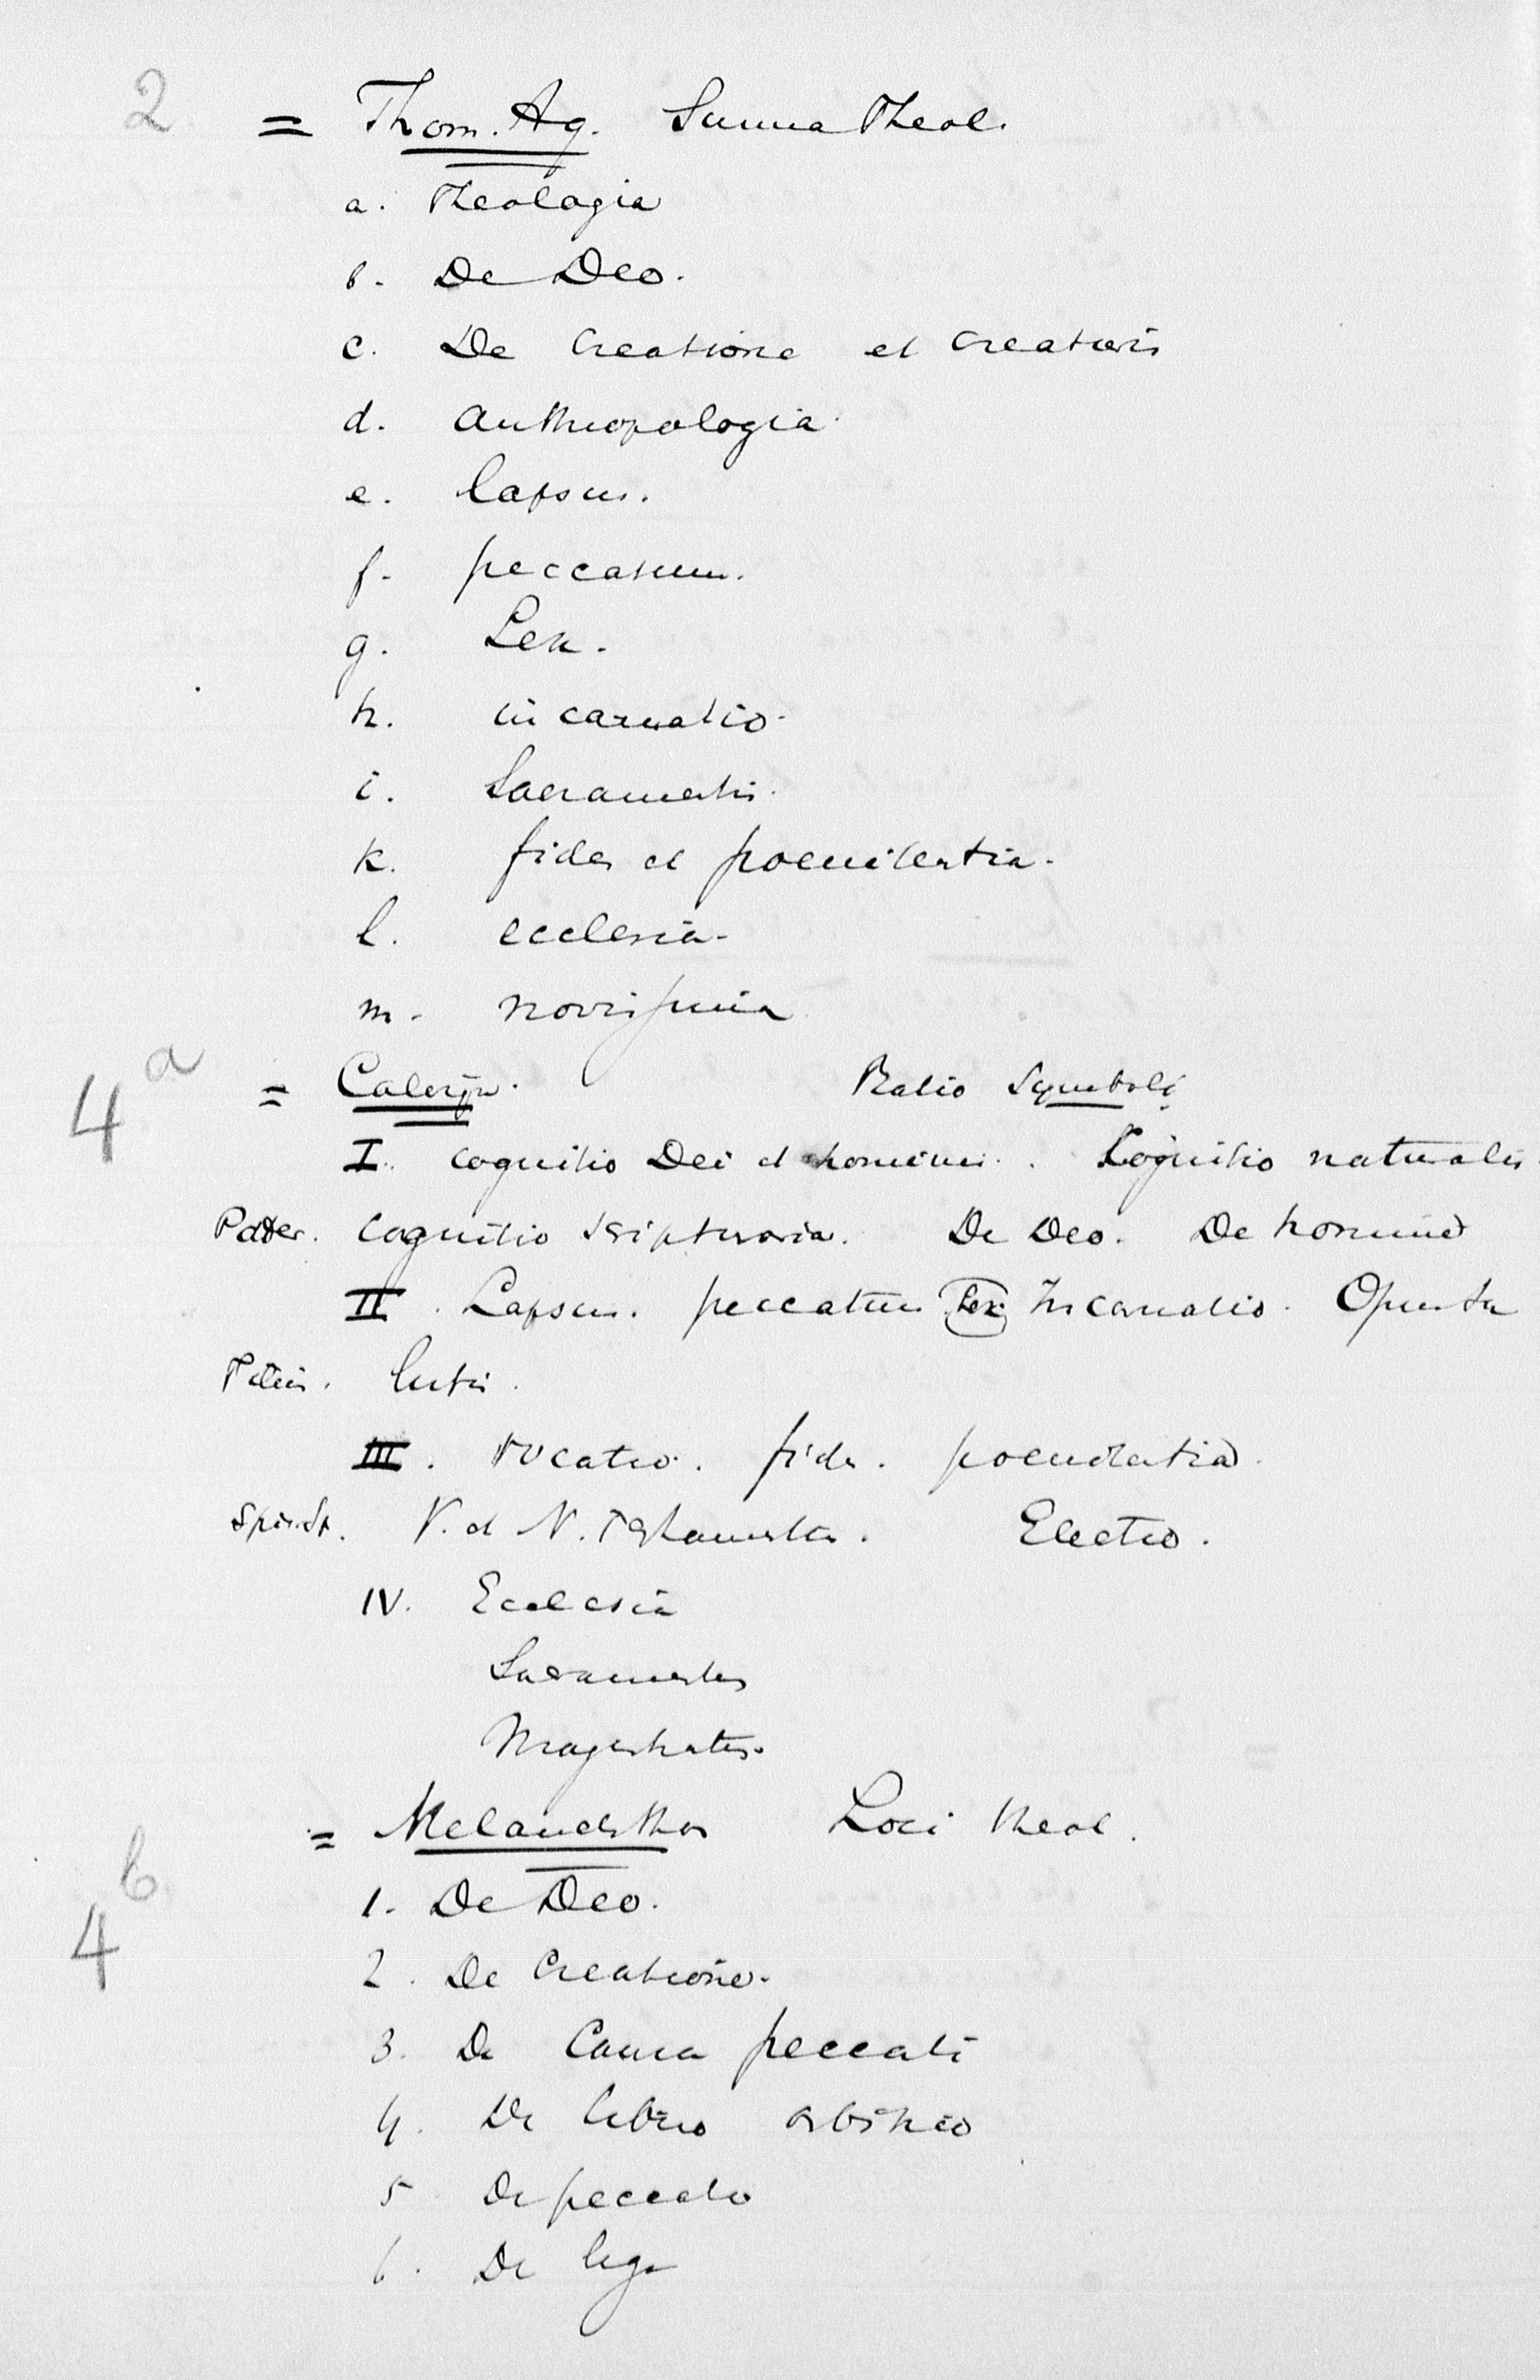 2 = Thom. Aq. Summa Theol.
a. Theologia
b. De Deo.
c. De Creatione et creaturis
d. Anthropologia.
e. lapsus.
f. peccatum.
g. Lex.
h. incarnatio.
i. Sacramentis.
k. fides et poenitentia.
l. ecclesia.
m. novissima
4a = Calvijn. Ratio Symboli
I. cognitio Dei et hominis. Cognitio naturalis.
Pater. cognitio scripturaria. De Deo. De homine
II. Lapsus. peccatum Lex. Incarnatio. Opus sa
Filius. lutis.
III. vocatio. fides. poenitentia.
Spir. St. V. et N. Testamentum. Electio.
IV. Ecclesia
Sacramentis
Magistratus.
4b = Melanchthon Loci theol.
1. De Deo.
2. De Creatione.
3. De Causa peccati
4. De libero arbitrio
5 De peccato
6. De lege